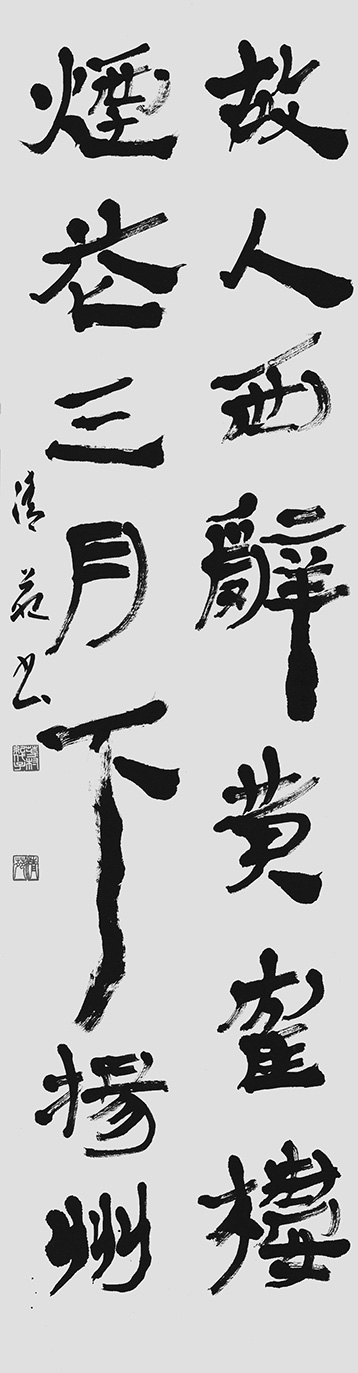 故人西辭黄隺樓
煙花三月下揚州
清 书